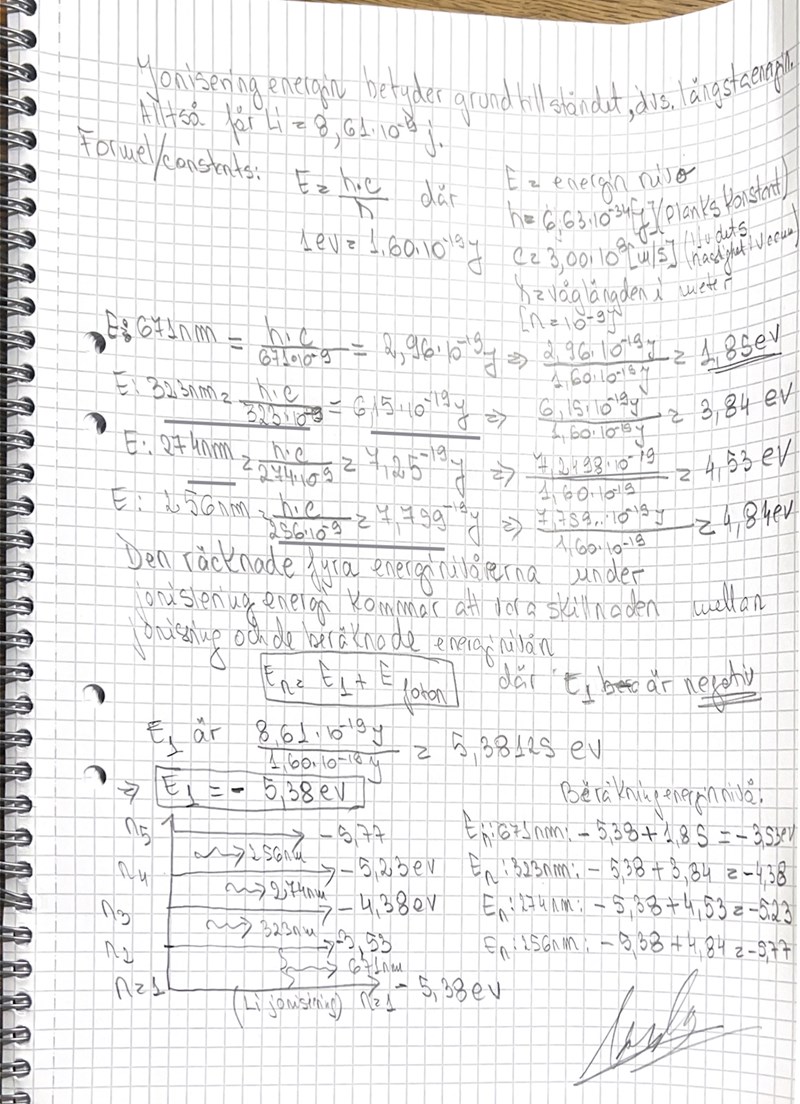 Jonisering energin betyder grundtillståndet, dvs. längstaenergin.
Alltså för Li = 8,61·10⁻¹⁹ j.
Formel/constants:
E = h·c/λ där
1ev = 1,60·10⁻¹⁹ J
E = energin nivå
h = 6,63·10⁻³⁴ [J] (Planks konstant)
c = 3,00·10⁸ [m/s] (ljudets hastighet i vacuum)
λ = våglängden i meter
[n = 10⁻⁹]
E: 671nm = h·c/671·10⁻⁹ = 2,96·10⁻¹⁹ J ⇒ 2,96·10⁻¹⁹ J/1,60·10⁻¹⁹ J = 1,85 ev
E: 323nm = h·c/323·10⁻⁹ = 6,15·10⁻¹⁹ J ⇒ 6,15·10⁻¹⁹ J/1,60·10⁻¹⁹ J = 3,84 ev
E: 274nm = h·c/274·10⁻⁹ = 7,25⁻¹⁹ J ⇒ 7,2498·10⁻¹⁹/1,60·10⁻¹⁹ = 4,53 ev
E: 256nm = h·c/256·10⁻⁹ = 7,799⁻¹⁹ J ⇒ 7,789..·10⁻¹⁹ J/1,60·10⁻¹⁹ = 4,84ev
Den räcknade fyra energinivåerna under
jonisering energi kommar att vara skillnaden mellan
jonising och de beräknade energinivån
Eₙ = E₁ + E foton där E₁ är negativ
E₁ är 8,61·10⁻¹⁹ J/1,60·10⁻¹⁹ J = 5,38125 ev
⇒ E₁ = - 5,38 ev
Beräkning energinnivå:
n5 -5,77
256nm
n4 -5,23 ev
274nm
n3 -4,38 ev
323nm
n2 -3,53
671nm
n=1 (Li jonisering) n=1 - 5,38 ev
Eₙ: 671nm: - 5,38 + 1,85 = -3,53ev
Eₙ: 323nm: - 5,38 + 3,84 = -4,38
Eₙ: 274nm: - 5,38 + 4,53 = -5,23
Eₙ: 256nm: - 5,38 + 4,84 = -5,77